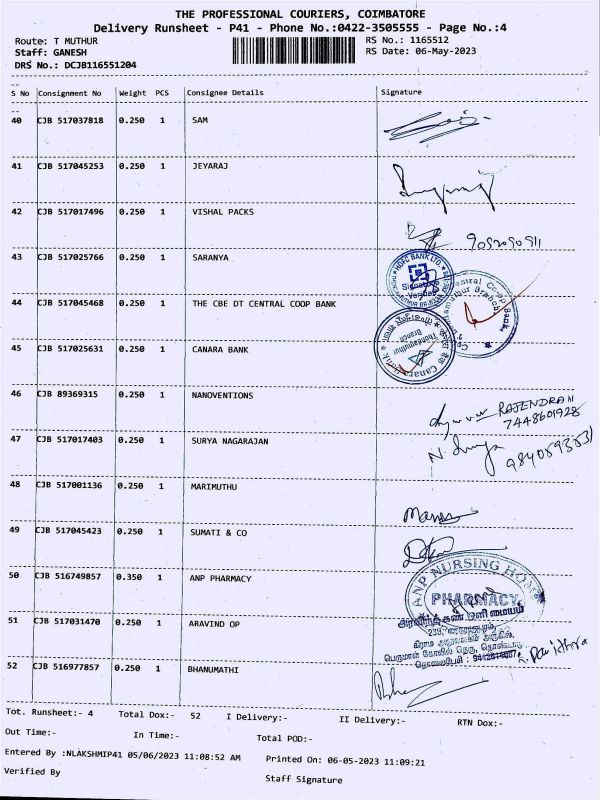 THE PROFESSIONAL COURIERS, COIMBATORE
Delivery Runsheet - P41 - Phone No.:0422-3505555 - Page No.:4
Route: T MUTHUR RS No.: 1165512
Staff: GANESH RS Date: 06-May-2023
DRS No.: DCJB116551204
S No Consignment No Weight PCS Consignee Details Signature
40 CJB 517037818 0.250 1 SAM
41 CJB 517045253 0.250 1 JEYARAJ
42 CJB 517017496 0.250 1 VISHAL PACKS
43 CJB 517025766 0.250 1 SARANYA
HDFC BANK LTD.
44 CJB 517045468 0.250 1 THE CBE DT CENTRAL COOP BANK
45 CJB 517025631 0.250 1 CANARA BANK
Thondamuthur
Branch
46 CJB 89369315 0.250 1 NANOVENTIONS
RAJENDRAN
7448601928
47 CJB 517017403 0.250 1 SURYA NAGARAJAN
48 CJB 517001136 0.250 1 MARIMUTHU
49 CJB 517045423 0.250 1 SUMATI & CO
50 CJB 516749857 0.350 1 ANP PHARMACY
ANP NURSING HOME
PHARMACY
51 CJB 517031470 0.250 1 ARAVIND OP
அரவிந்த் கண் ஒளி மையம்
52 CJB 516977857 0.250 1 BHANUMATHI
Tot. Runsheet:- 4 Total Dox:- 52 I Delivery:- II Delivery:- RTN Dox:-
Out Time:- In Time:- Total POD:-
Entered By :NLAKSHMIP41 05/06/2023 11:08:52 AM Printed On: 06-05-2023 11:09:21
Verified By Staff Signature